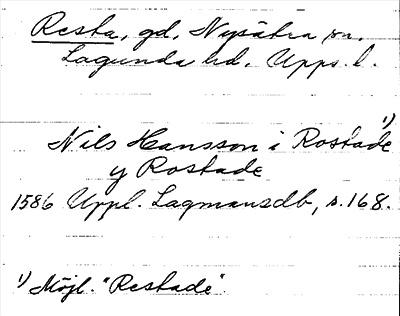 Resta, gd, Nysätra sn.
Lagunda hd. Upps. l.
Nils Hansson i Rostade 1)
y Rostade
1586 Uppl. Lagmansdb, s. 168.
1) Möjl. "Restade".